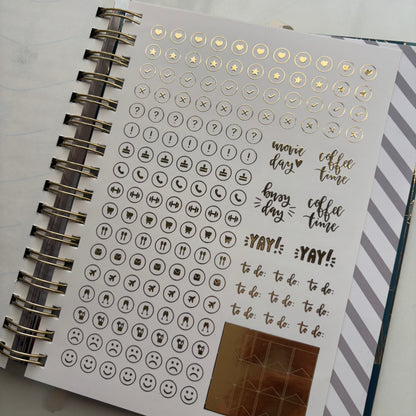 ? ? ? ? ? ? ?
! ! ! ! ! ! !
movie
day
coffee
time
busy
day
coffee
time
YAY! YAY!
to do: to do: to do: to do:
to do: to do: to do: to do:
to do: to do: to do: to do: